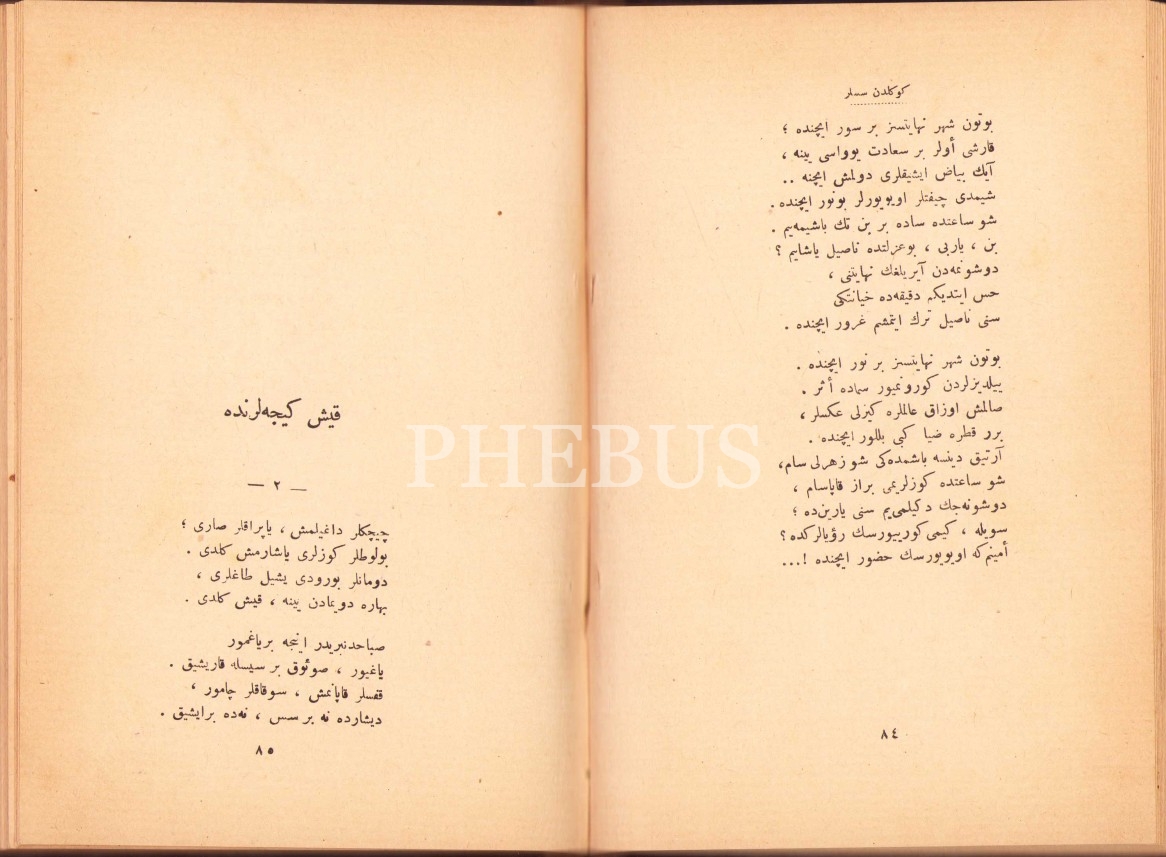 كوكلدن سسلر
بوتون شهر نهايتسز بر سور ايچنده ؛
قارشى أولر بر سعادت يوواسى يينه ،
آيك بياض ايشيقلرى دولمش ايچنه ..
شيمدى چيفتلر اويويورلر بونور ايچنده .
شو ساعتده ساده بر بن تك باشيمه‌يم .
بن ، ياربى ، بوعزلتده ناصيل ياشايم ؟
دوشونمه‌دن آيريلغك نهايتنى ،
حس ايتديكم دقيقه‌ده خيانتكى
سنى ناصيل ترك ايتمشم غرور ايچنده .
بوتون شهر نهايتسز بر نور ايچنده .
ييلديزلردن كورونميور سماده أثر .
صالمش اوزاق عالملره كيزلى عكسلر ،
برر قطره ضيا كبى بللور ايچنده .
آرتيق دينسه باشمده‌كى شو زهرلى سام،
شو ساعتده كوزلريمى براز قاپاسام ،
دوشونه‌جك دكيلمى‌يم سنى يارين‌ده ؛
سويله ، كيمى كورييورسك رؤيالركده ؟
أمينم‌كه اويويورسك حضور ايچنده !...
٨٤
PHEBUS
قيش كيجه‌لرنده
— ٢ —
چيچكلر داغيلمش ، ياپراقلر صارى ؛
بولوطلر كوزلرى ياشارمش كلدى .
دومانلر بورودى يشيل طاغلرى ،
بهاره دويمادن يينه ، قيش كلدى .
صباحدنبريدر اينجه برياغمور
ياغيور ، صوئوق بر سيسله قاريشيق .
قفسلر قاپانمش ، سوقاقلر چامور ،
ديشارده نه بر سس ، نه‌ده برايشيق .
٨٥